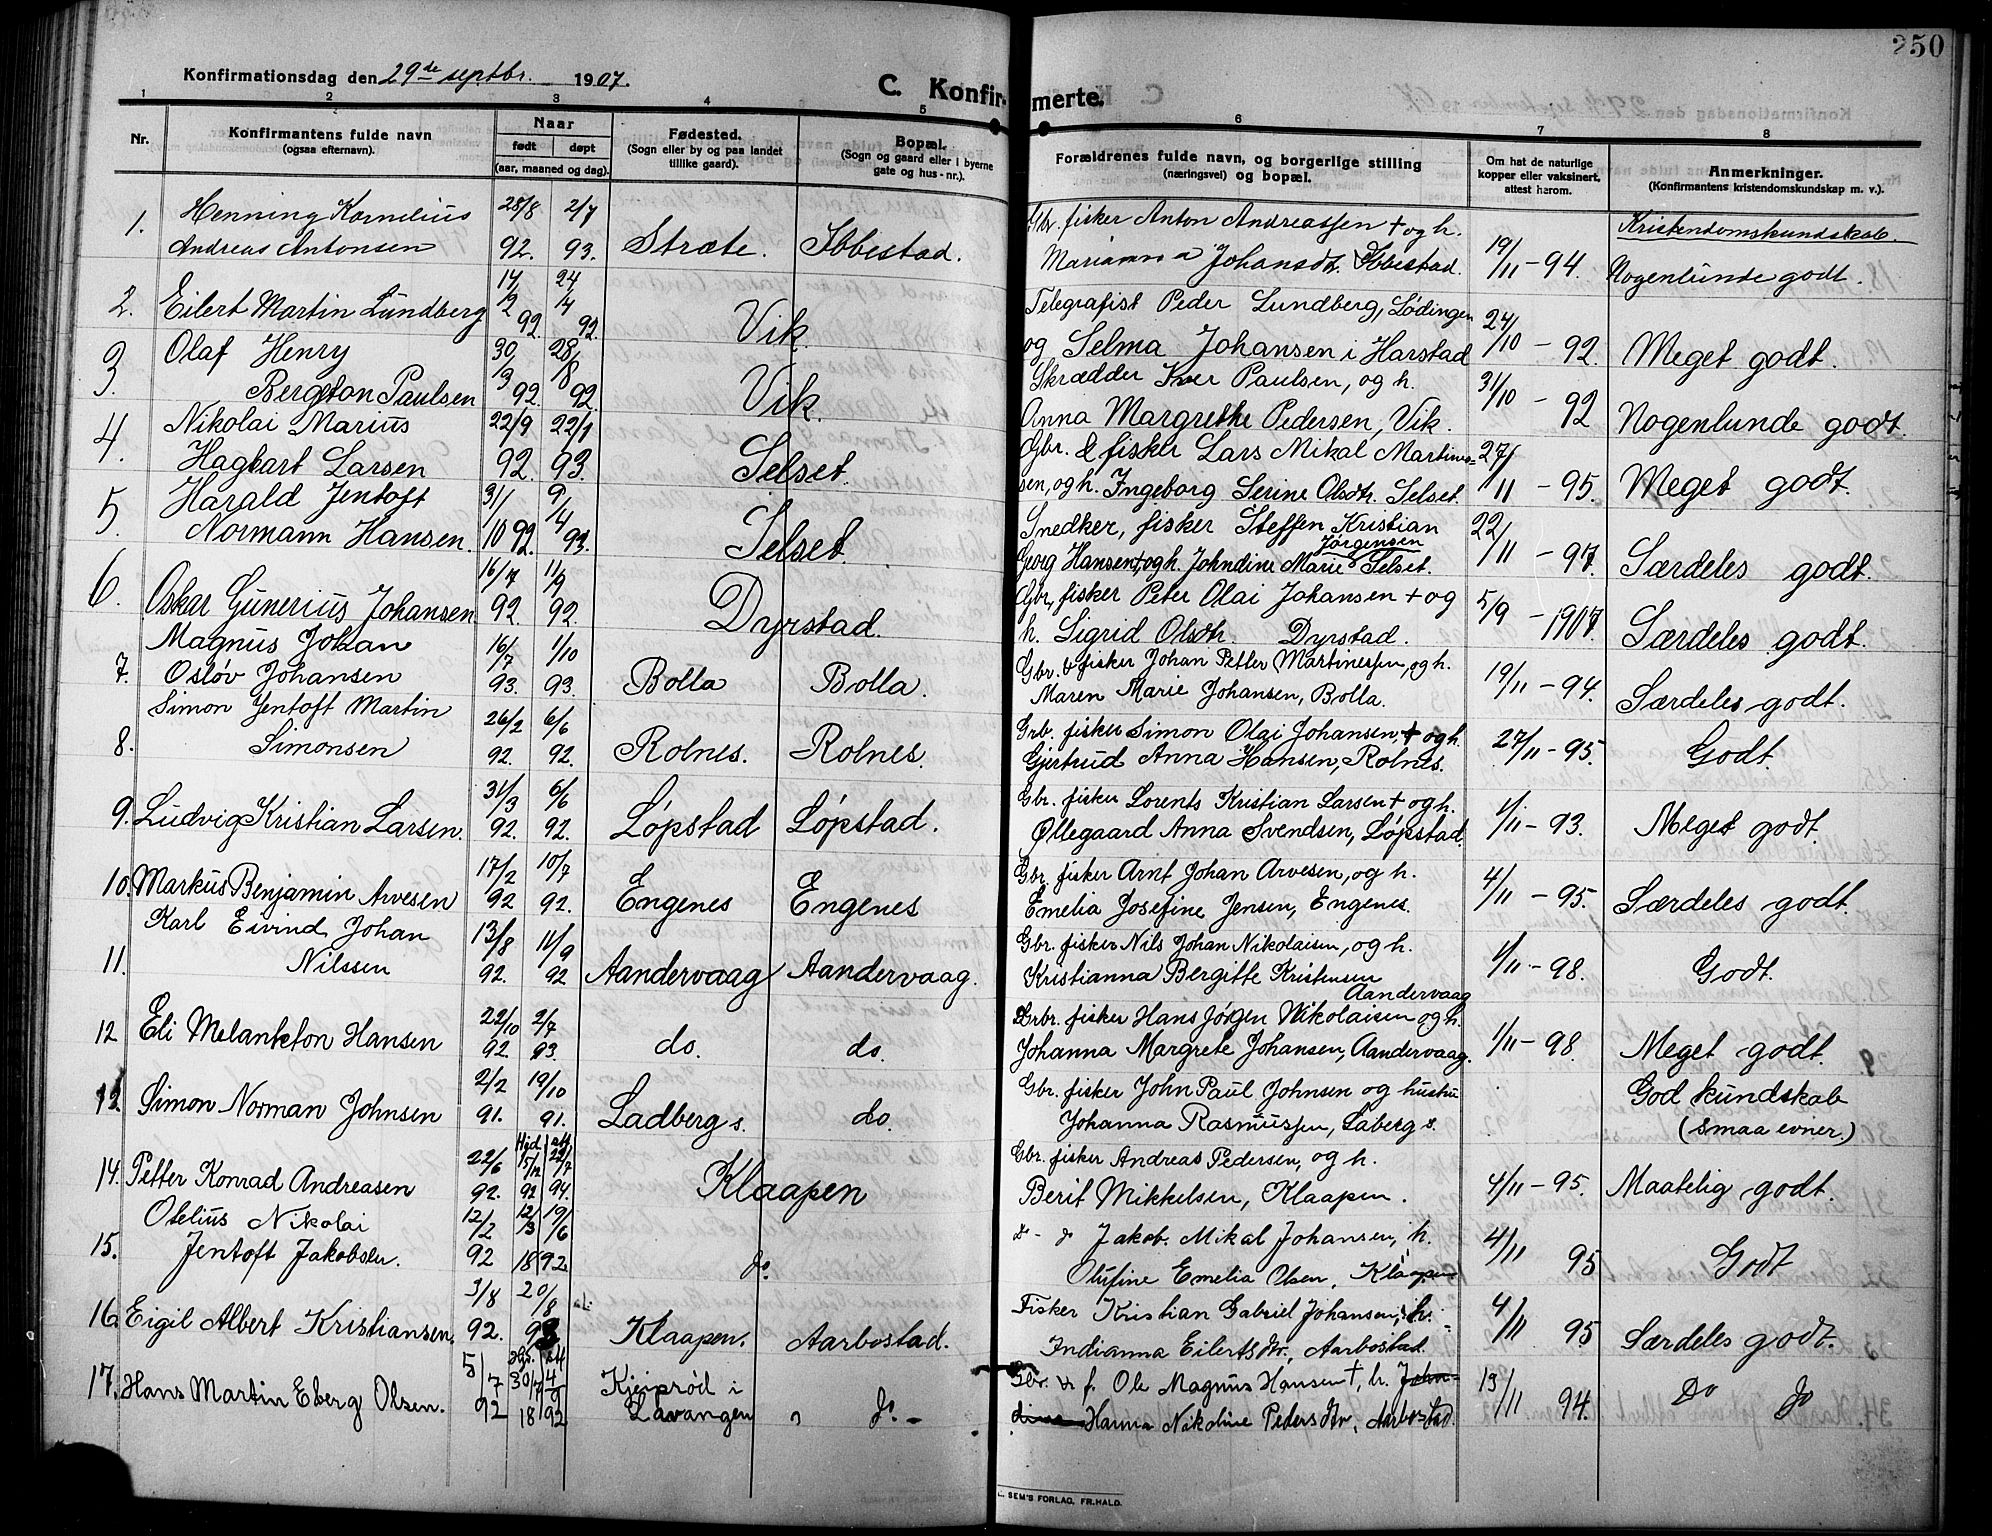 250
Konfirmationsdag den 29de septbr. 1907.
C. Konfirmerte.
1 2 3 4 5 6 7 8
Nr.
Konfirmantens fulde navn
(ogsaa efternavn).
Naar
født døpt
(aar, maaned og dag).
Fødested.
(Sogn eller by og paa landet
tillike gaard).
Bopæl.
(Sogn og gaard eller i byerne
gate og hus-nr.).
Forældrenes fulde navn, og borgerlige stilling
(næringsvei) og bopæl.
Om hat de naturlige
kopper eller vaksinert,
attest herom.
Anmerkninger.
(Konfirmantens kristendomskundskap m. v.).
Kristendomskundskab.
1. Henning Kornelius 28/8 2/7 Gbr. fisker Anton Andreassen + og h.
Andreas Antonsen 92. 93. Stræte. Ibbestad. Marianna Johansdt. Ibbestad. 19/11 - 94. Nogenlunde godt.
2. Eilert Martin Lundberg 14/2 92. 24/4 92. Vik. Telegrafist Peder Lundberg, Lødingen
og Selma Johansen i Harstad 24/10 - 92. Meget godt.
3. Olaf Henry 30/3 28/8 Skrædder Iver Paulsen, og h.
Bergton Paulsen 92. 92. Vik. Anna Margrethe Pedersen, Vik. 31/10 - 92 Nogenlunde godt.
4. Nikolai Marius 22/9 22/1 Gbr. & fisker Lars Mikal Martines-
Hagbart Larsen 92. 93. Selset. sen, og h. Ingeborg Serine Olsdtr. Selset. 27/11 - 95. Meget godt.
5. Harald Jentoft 31/10 9/4 Snedker, fisker Steffen Kristian
Normann Hansen. 92. 93. Selset. Georg Hansen + og h. Johndine Marie Jørgensen Selset. 22/11 - 97. Særdeles godt.
6. Oskar Gunerius Johansen 16/7 92. 11/9 92. Dyrstad. Gbr, fisker Peter Olai Johansen + og
h. Sigrid Olsdtr. Dyrstad. 5/9 - 1907. Særdeles godt.
7. Magnus Johan 16/7 1/10 Gbr. & fisker Johan Petter Martinessen, og h.
Osløv Johansen 93. 93. Bolla Bolla. Maren Marie Johansen, Bolla. 19/11 - 94. Særdeles godt.
8. Simon Jentoft Martin 26/2 6/6 Grb. fisker Simon Olai Johansen, + og h.
Simonsen 92. 92. Rolnes. Rolnes. Gjertrud Anna Hansen, Rolnes. 27/11 - 95. Godt.
9. Ludvig Kristian Larsen. 31/3 92. 6/6 92. Løpstad Løpstad. Gbr. fisker Lorents Kristian Larsen + og h.
Ollegaard Anna Svendsen, Løpstad. 1/11 - 93. Meget godt.
10. Markus Benjamin Arvesen 17/2 92 10/7 92. Engenes Engenes Gbr. fisker Arnt Johan Arvesen, og h.
Emelia Josefine Jensen, Engenes. 4/11 - 95. Særdeles godt.
11. Karl Eivind Johan 13/8 11/9 Gbr. fisker Nils Johan Nikolaisen, og h.
Nilssen 92. 92 Aandervaag Aandervaag. Kristianna Bergitte Kristensen
Aandervaag 1/11 - 98. Godt.
12 Eli Melankton Hansen 22/10 92. 2/7 93. do. do. Grbr. fisker Hans Jørgen Nikolaisen og h.
Johanna Margrete Johansen, Aandervaag. 1/11 - 98. Meget godt.
13 Simon Norman Johnsen 2/2 91. 19/10 91. Ladberg s. do. Gbr. fisker John Paul Johnsen og hustru
Johanna Rasmussen, Laberg s. God kundskab
(smaa evner.)
14. Petter Konrad Andreasen 22/6 92. Hjd. 15/12 92 att. 22/7 94. Klaapen Gbr. fisker Andreas Pedersen, og h.
Berit Mikkelsen, Klaapen. 4/11 - 95. Maatelig godt.
15. Otelius Nikolai 12/2 12/3 19/6 Jakob. Mikal Johansen, h.
Jentoft Jakobsen. 92 18 92. do. Olufine Emelia Olsen, Klaapen 4/11 95 Godt
16. Eigil Albert Kristiansen. 3/8 92. 20/8 93 Klaapen. Aarbostad. Fisker Kristian Gabriel Johansen, h.
Indianna Eilertsdtr., Aarbostad. 4/11 95 Særdeles godt.
17. Hans Martin Eberg Olsen. 5/7 92 Hjd. 30/7 att 4/9 18 92 Kjeiprød i
Lavangen do. - Gbr. & f. Ole Magnus Hansen +, h. John-
dine Hanna Nikoline Pedersdtr, Aarbostad. 13/11 94. Do do
E. SEM'S FORLAG, FR.HALD.